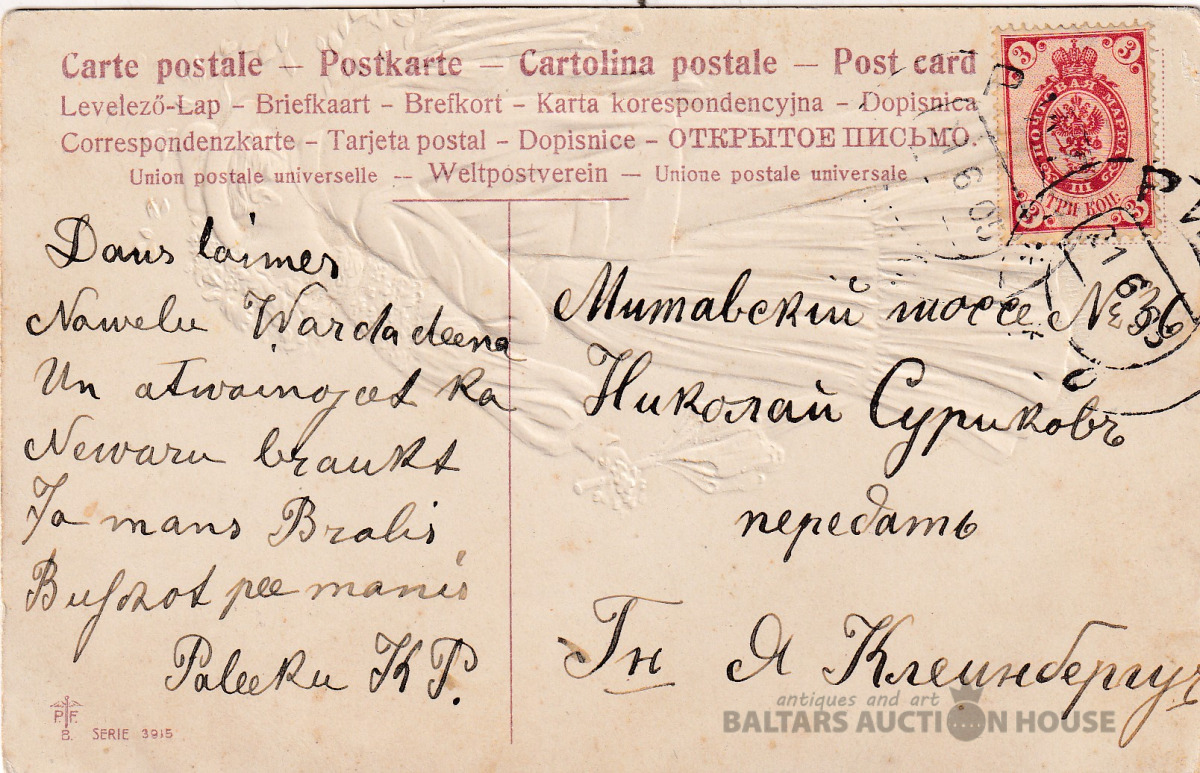 Carte postale – Postkarte – Cartolina postale – Post card
Levelező-Lap – Briefkaart – Brefkort – Karta korespondencyjna – Dopisnica
Correspondenzkarte – Tarjeta postal – Dopisnice – ОТКРЫТОЕ ПИСЬМО.
Union postale universelle — Weltpostverein — Unione postale universale
3 3
ПОЧТОВАЯ МАРКА
III
ТРИ КОП.
3 3
Daus laimes
Nowelu Warda deena
Un atwainojeet ka
Newaru braukt
Ja mans Bralis
pee manis
Paleeku K P.
Митавскій шоссе N 36
Николай Суриковъ
передать
Гн Я Клеинбергу
P. F.
B. SERIE 3915
antiques and art
BALTARS AUCTION HOUSE